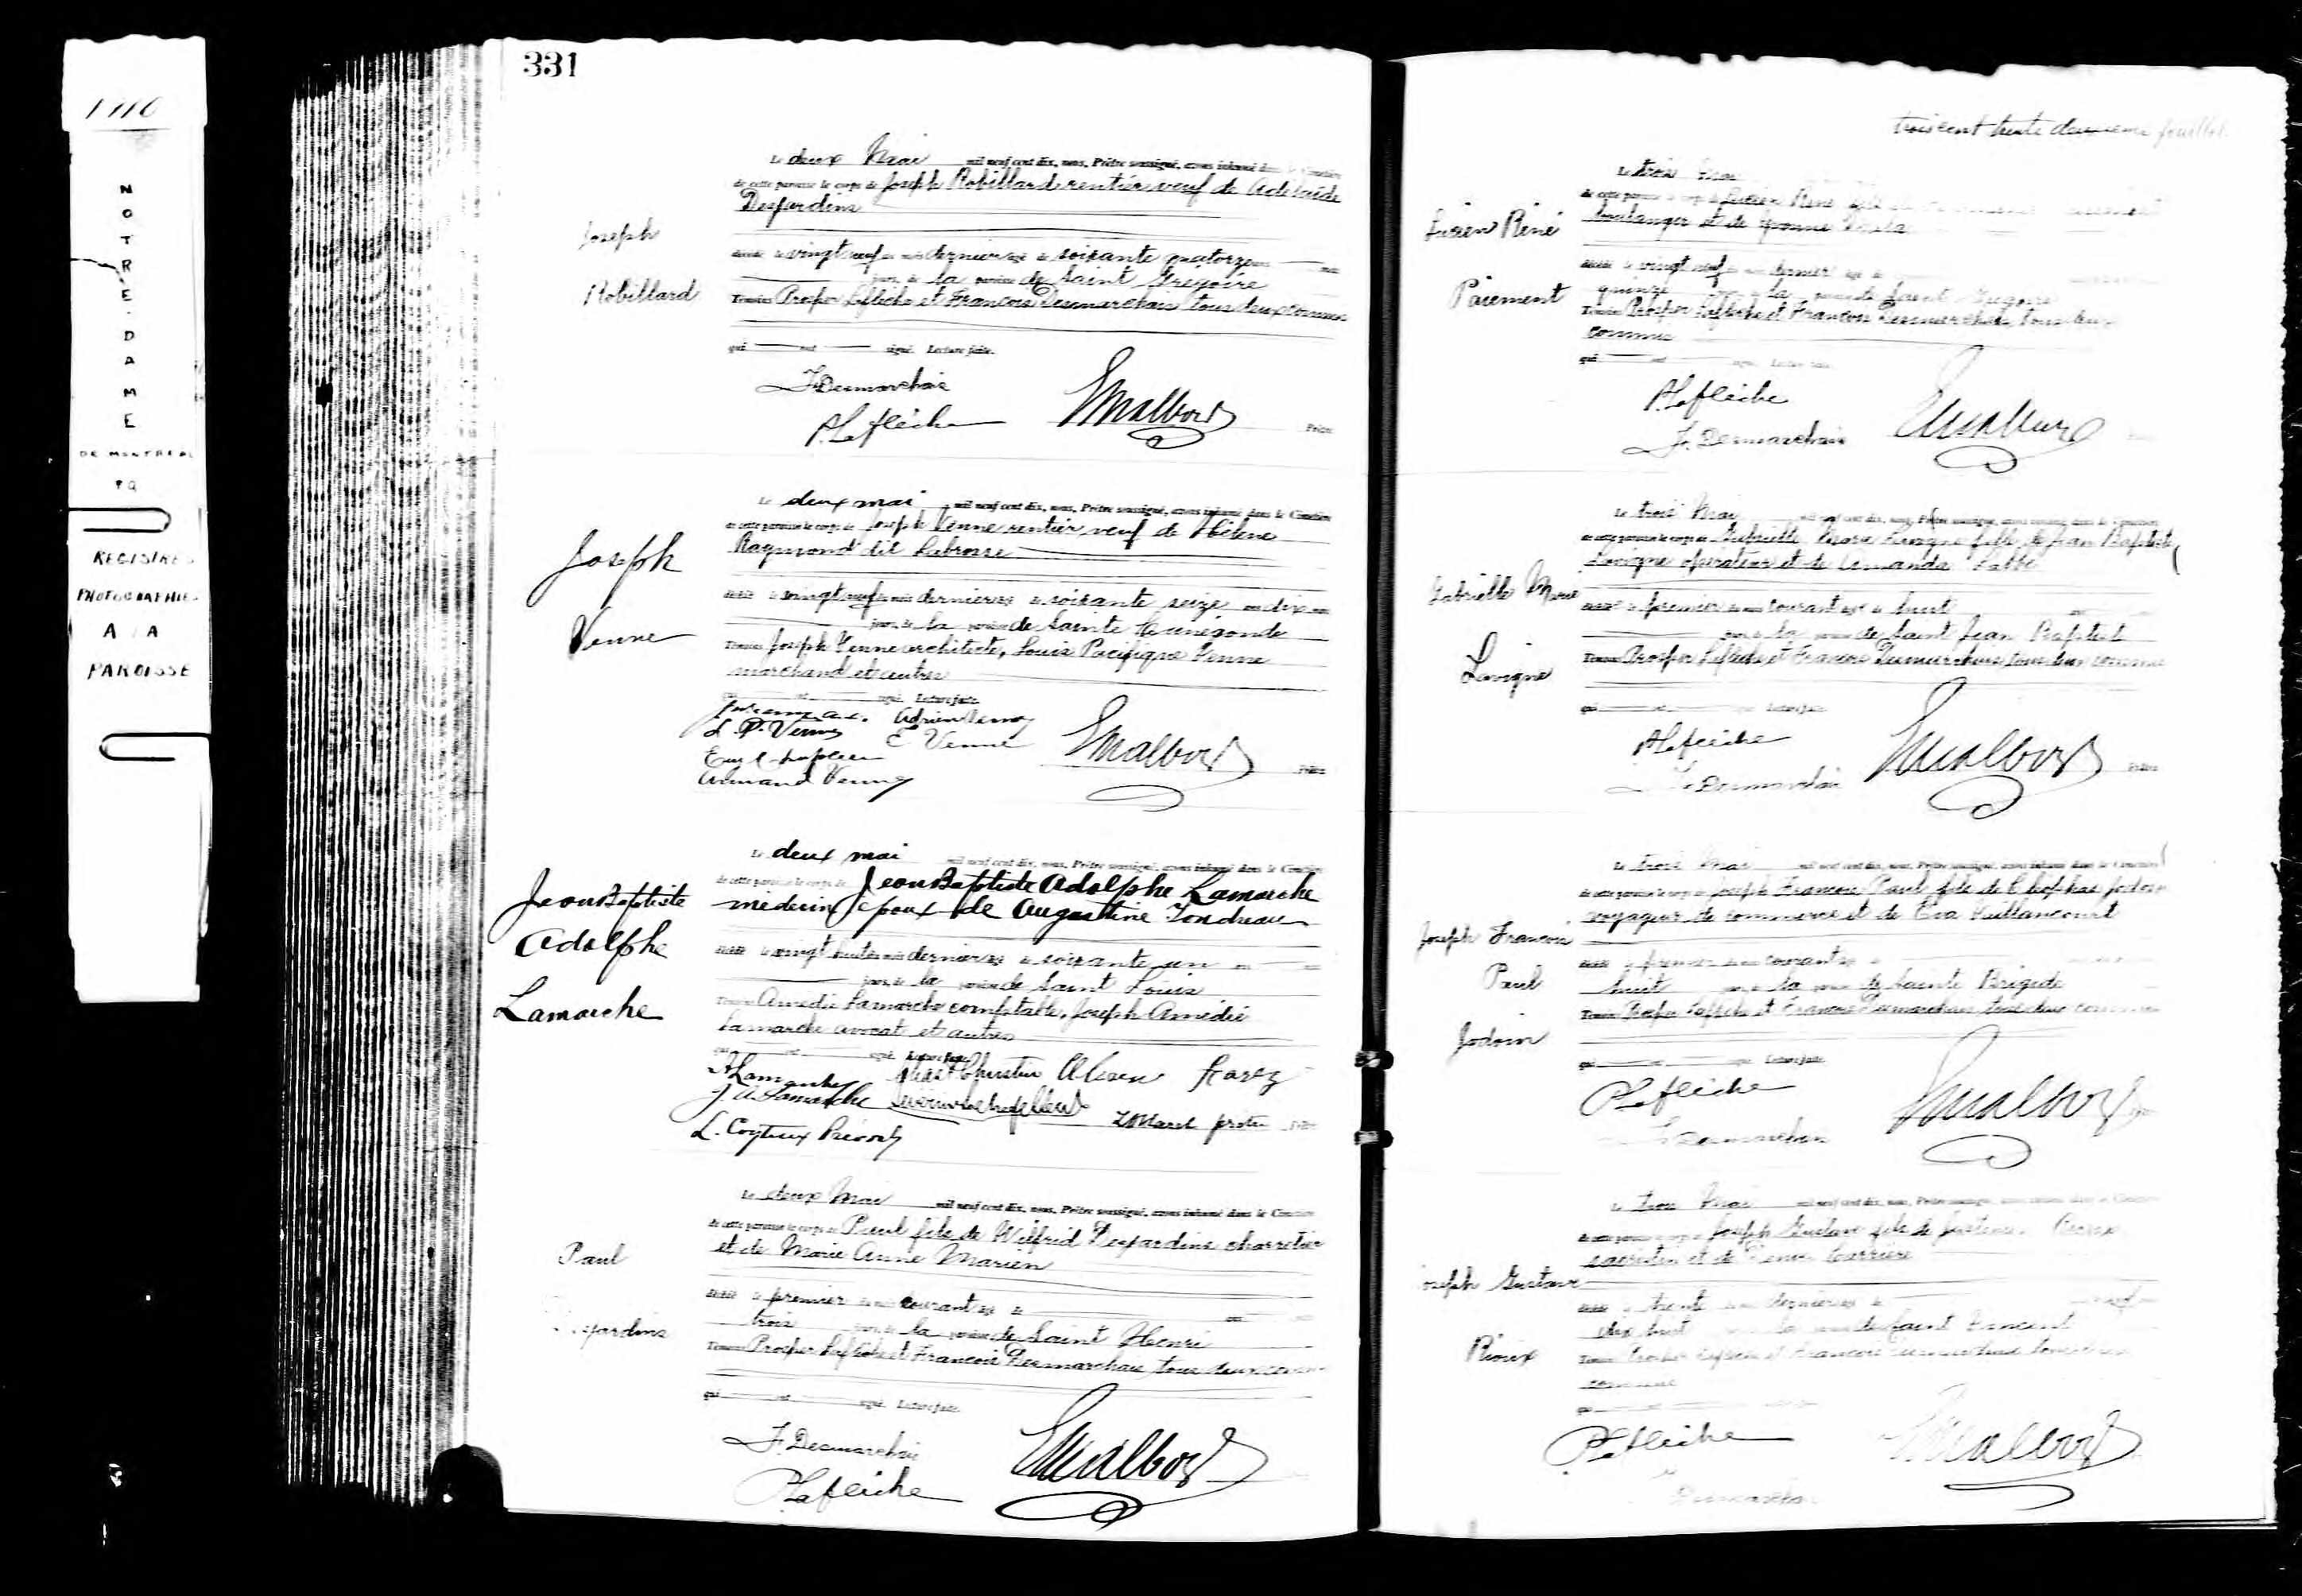 1910
NOTRE-DAME
DE MONTREAL
P Q
REGISTRES
PHOTOGRAPHIES
A LA
PAROISSE
331
Joseph
Robillard
Le deux Mai mil neuf cent dix, nous, Prêtre soussigné, avons inhumé dans le Cimetière
de cette paroisse le corps de Joseph Robillard rentier veuf de Adélaide
Desjardins
décédé le vingt neuf du mois dernier âgé de soixante quatorze ans
jours, de la paroisse de Saint Grégoire
Témoins Prosper Laflèche et Francois Desmarchais tous deux commis
qui ont signé. Lecture faite.
F. Desmarchais
P. Laflèche
Prêtre
Joseph
Venne
Le deux mai mil neuf cent dix, nous, Prêtre soussigné, avons inhumé dans le Cimetière
de cette paroisse le corps de Joseph Venne rentier veuf de Hélène
Raymond dit Labrosse
décédé le vingt neuf du mois dernier âgé de soixante seize ans dix mois
jours, de la paroisse de Sainte Cunégonde
Témoins Joseph Venne architecte, Louis Pacifique Venne
marchand et autres
qui ont signé. Lecture faite.
L. P. Venne E. Venne
Armand Venne
Prêtre
Jean Baptiste
Adolphe
Lamarche
Le deux mai mil neuf cent dix, nous, Prêtre soussigné, avons inhumé dans le Cimetière
de cette paroisse le corps de Jean Baptiste Adolphe Lamarche
médecin époux de Augustine
décédé le vingt huit du mois dernier âgé de soixante un ans
jours, de la paroisse de Saint Louis
Témoins Amédée Lamarche comptable, Joseph Amédée
Lamarche avocat et autres
qui ont signé. Lecture faite.
A Lamarche
J. A. Lamarche
L. Coyteux Prévost
Paul
Desjardins
Le deux Mai mil neuf cent dix, nous, Prêtre soussigné, avons inhumé dans le Cimetière
de cette paroisse le corps de Paul fils de Wilfrid Desjardins charretier
et de Marie Anne Marien
décédé le premier du mois courant âgé de
trois jours, de la paroisse de Saint Henri
Témoins Prosper Laflèche et Francois Desmarchais tous deux commis
qui ont signé. Lecture faite.
F. Desmarchais
P. Laflèche
trois cent trente deuxième feuillet
Lucien René
Paiement
Le trois Mai
de cette paroisse le corps de Lucien René fils
boulanger et de Yvonne
décédé le vingt neuf du mois dernier âgé de
quinze jours, de la paroisse de Saint Grégoire
Témoins Prosper Laflèche et Francois Desmarchais tous deux
commis
qui ont signé. Lecture faite.
P. Laflèche
F. Desmarchais
Gabrielle Marie
Lavigne
Le trois Mai mil neuf cent dix, nous, Prêtre soussigné, avons inhumé dans le Cimetière
de cette paroisse le corps de Gabrielle Marie Lavigne fille de Jean Baptiste
Lavigne opérateur et de Amanda Labbé
décédée le premier du mois courant âgé de huit
jours, de la paroisse de Saint Jean Baptiste
Témoins Prosper Laflèche et Francois Desmarchais tous deux commis
qui ont signé. Lecture faite.
P. Laflèche
F. Desmarchais
Prêtre
Joseph Francois
Paul
Jodoin
Le trois Mai mil neuf cent dix, nous, Prêtre soussigné, avons inhumé dans le Cimetière
de cette paroisse le corps de Joseph Francois Paul fils de Cléophas Jodoin
voyageur de commerce et de Eva Vaillancourt
décédé le premier du mois courant âgé de
huit jours, de la paroisse de Sainte Brigide
Témoins Prosper Laflèche et Francois Desmarchais tous deux commis
qui ont signé. Lecture faite.
P. Laflèche
F. Desmarchais
Joseph Gustave
Rioux
Le trois Mai mil neuf cent dix, nous, Prêtre soussigné, avons inhumé dans le Cimetière
de cette paroisse le corps de Joseph Gustave fils de Rioux
sacristain et de Carrière
décédé le trente du mois dernier âgé de
dix huit jours, de la paroisse de Saint Vincent
Témoins Prosper Laflèche et Francois Desmarchais tous deux
commis
P. Laflèche
Desmarchais